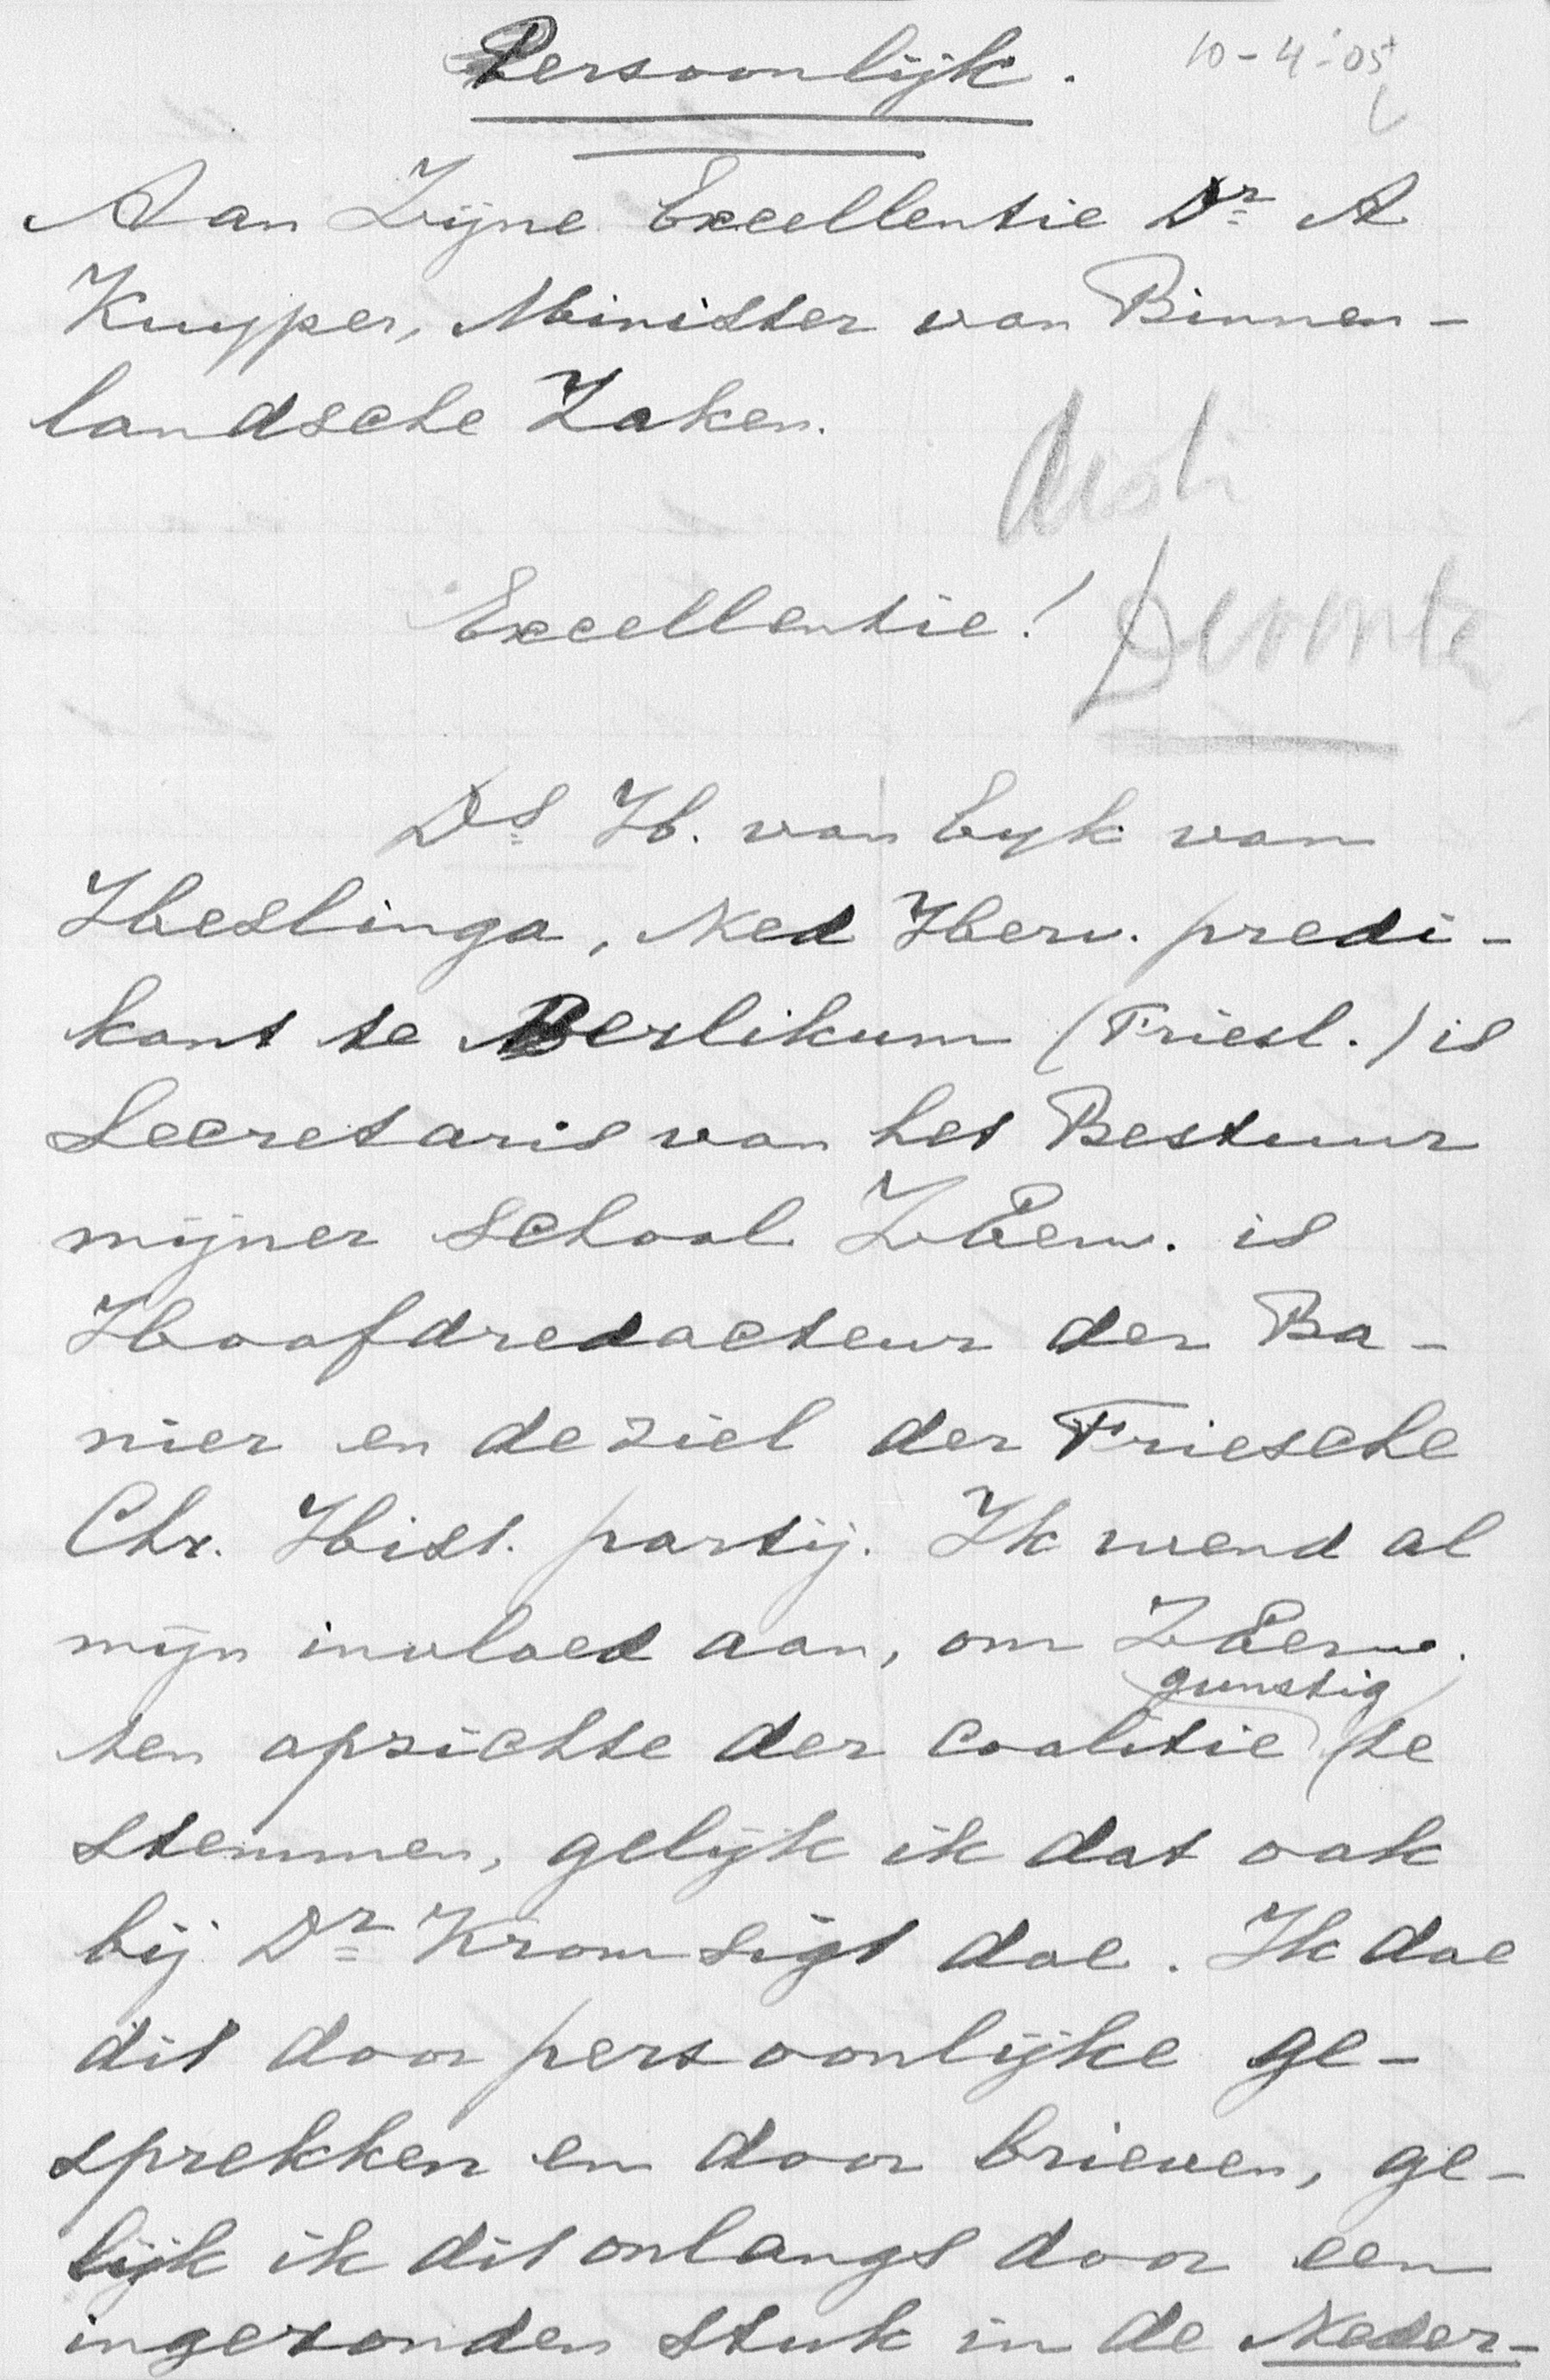 Persoonlijk. 10-4-'05
Aan Zijne Excellentie Dr A
Kuyper, Minister van Binnen-
landsche Zaken.
Excellentie!
Deventer
Ds H. van Eyk van
Heslinga, Ned Herv. predi-
kant te Berlikum (Friesl.) is
Secretaris van het Bestuur
mijner school ZEerw. is
Hoofdredacteur der Ba-
nier en de ziel der Friesche
Chr. Hist. partij. Ik wend al
mijn invloed aan, om ZEerw.
gunstig
ten opzichte der coalitie te
stemmen, gelijk ik dat ook
bij Dr Kromsigt doe. Ik doe
dit door persoonlijke ge-
sprekken en door brieven, ge-
lijk ik dit onlangs door een
ingezonden stuk in de Neder-